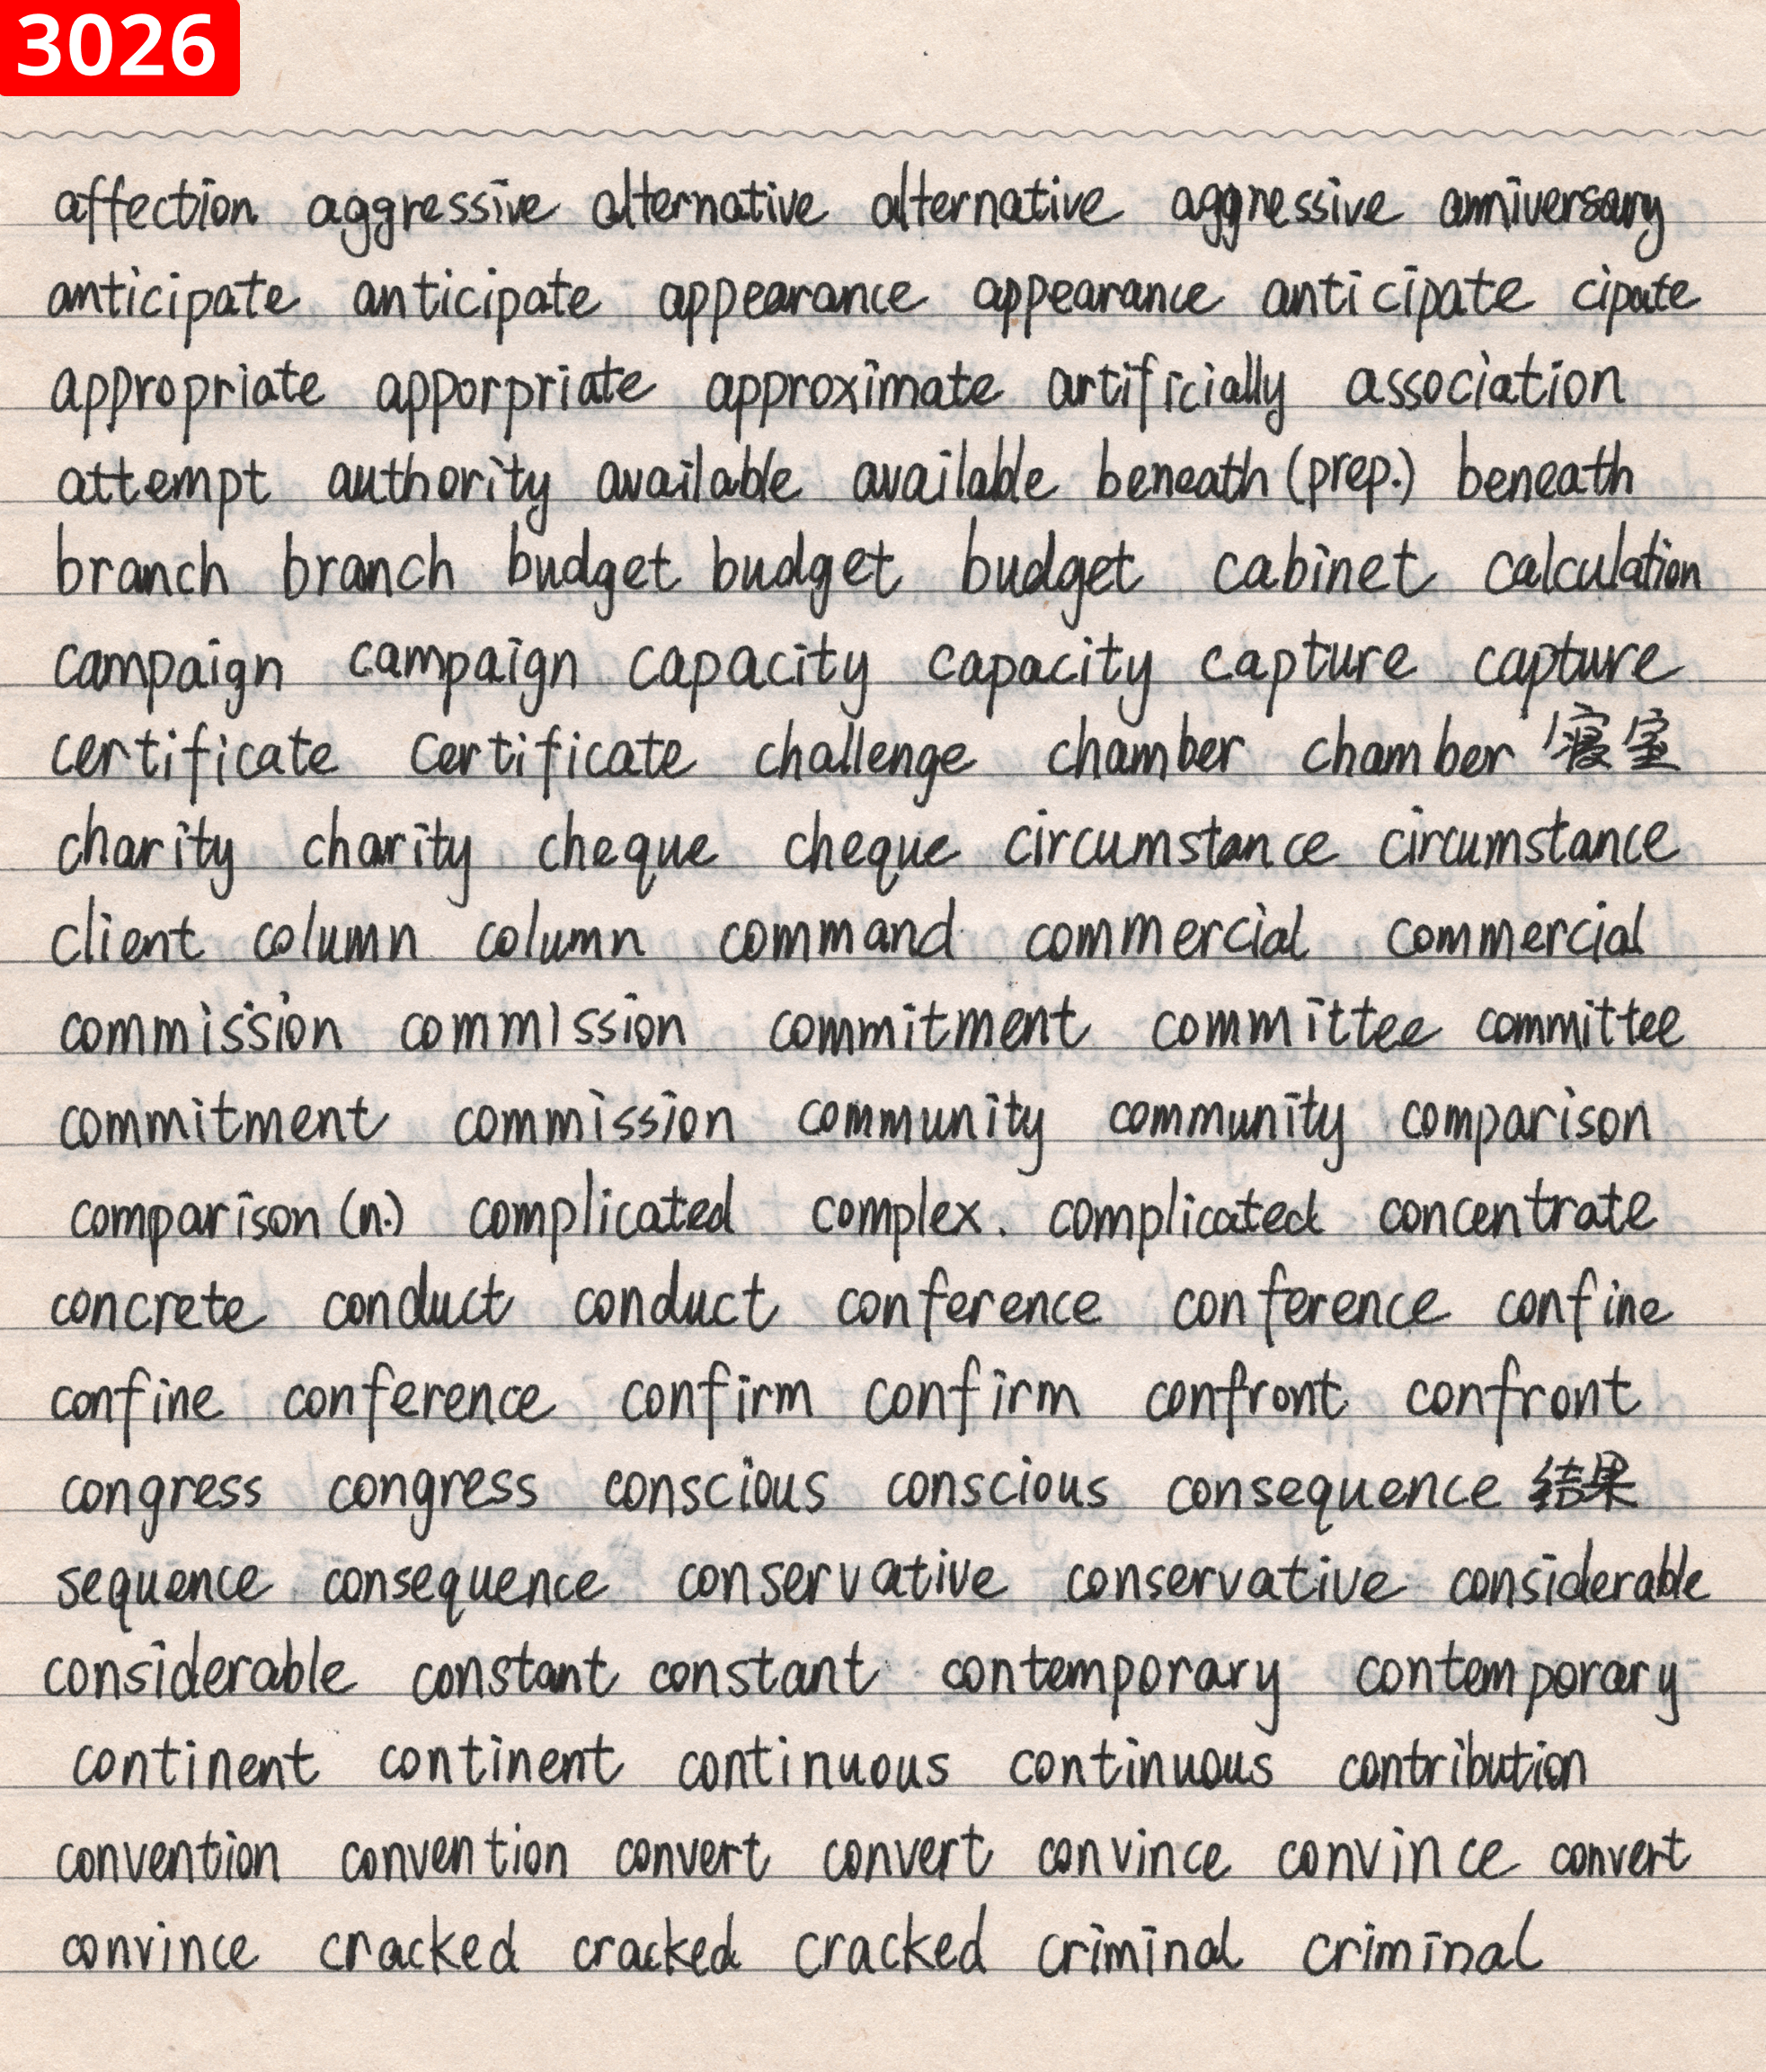 3026
affection aggressive alternative alternative aggressive anniversary
anticipate anticipate appearance appearance anticipate cipate
appropriate apporpriate approximate artificially association
attempt authority available available beneath (prep.) beneath
branch branch budget budget budget cabinet calculation
campaign campaign capacity capacity capture capture
certificate certificate challenge chamber chamber 寝室
charity charity cheque cheque circumstance circumstance
client column column command commercial commercial
commission commission commitment committee committee
commitment commission community community comparison
comparison (n.) complicated complex. complicated concentrate
concrete conduct conduct conference conference confine
confine conference confirm confirm confront confront
congress congress conscious conscious consequence 结果
sequence consequence conservative conservative considerable
considerable constant constant contemporary contemporary
continent continent continuous continuous contribution
convention convention convert convert convince convince convert
convince cracked cracked cracked criminal criminal